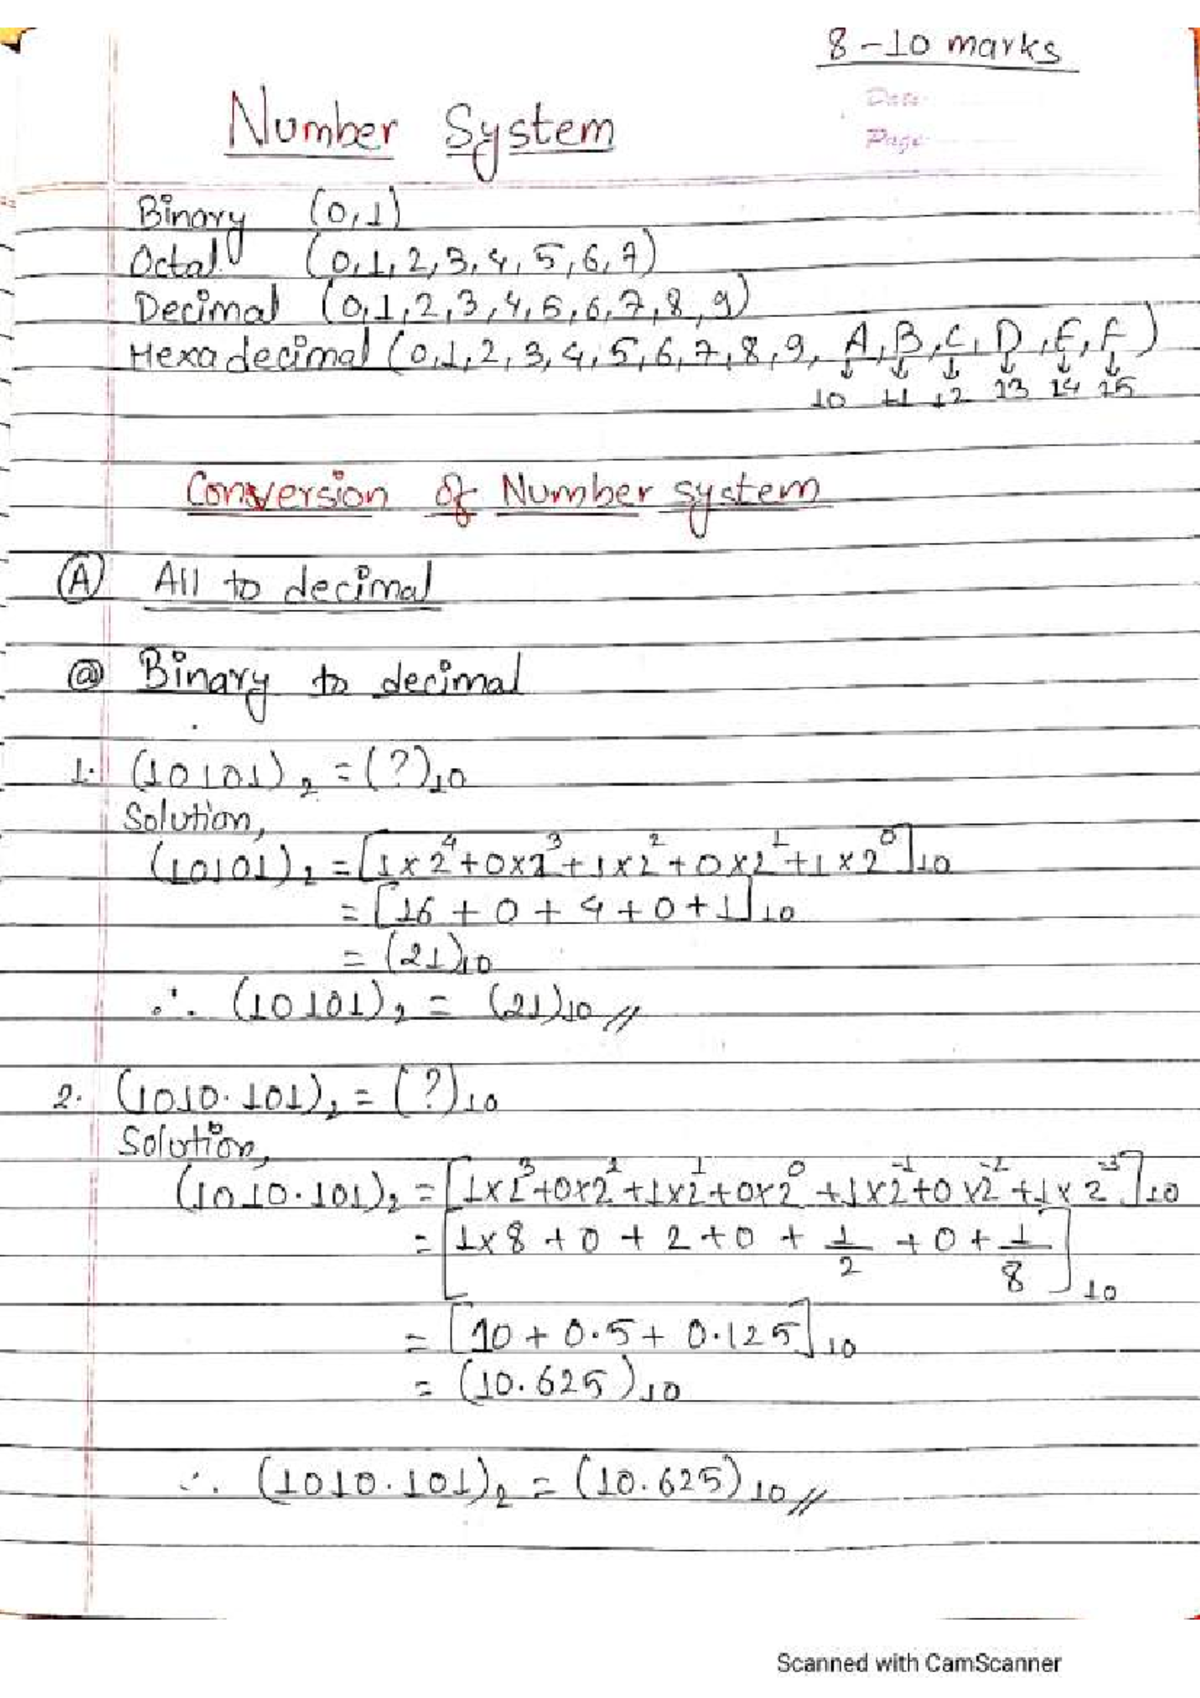 8-10 marks
Date:
Page:
Number System
Binary (0,1)
Octal (0,1,2,3,4,5,6,7)
Decimal (0,1,2,3,4,5,6,7,8,9)
Hexadecimal (0,1,2,3,4,5,6,7,8,9, A,B,C,D,E,F)
↓ ↓ ↓ ↓ ↓ ↓
10 11 12 13 14 15
Conversion of Number system
Ⓐ All to decimal
ⓐ Binary to decimal
1. (10101)₂ = (?)₁₀
Solution,
(10101)₂ = [1×2⁴+0×2³+1×2²+0×2¹+1×2⁰]₁₀
= [16 + 0 + 4 + 0 + 1]₁₀
= (21)₁₀
∴ (10101)₂ = (21)₁₀//
2. (1010.101)₂ = (?)₁₀
Solution,
(1010.101)₂ = [1×2³+0×2²+1×2¹+0×2⁰+1×2⁻¹+0×2⁻²+1×2⁻³]₁₀
= [1×8 + 0 + 2 + 0 + 1/2 + 0 + 1/8]₁₀
= [10 + 0.5 + 0.125]₁₀
= (10.625)₁₀
∴ (1010.101)₂ = (10.625)₁₀//
Scanned with CamScanner